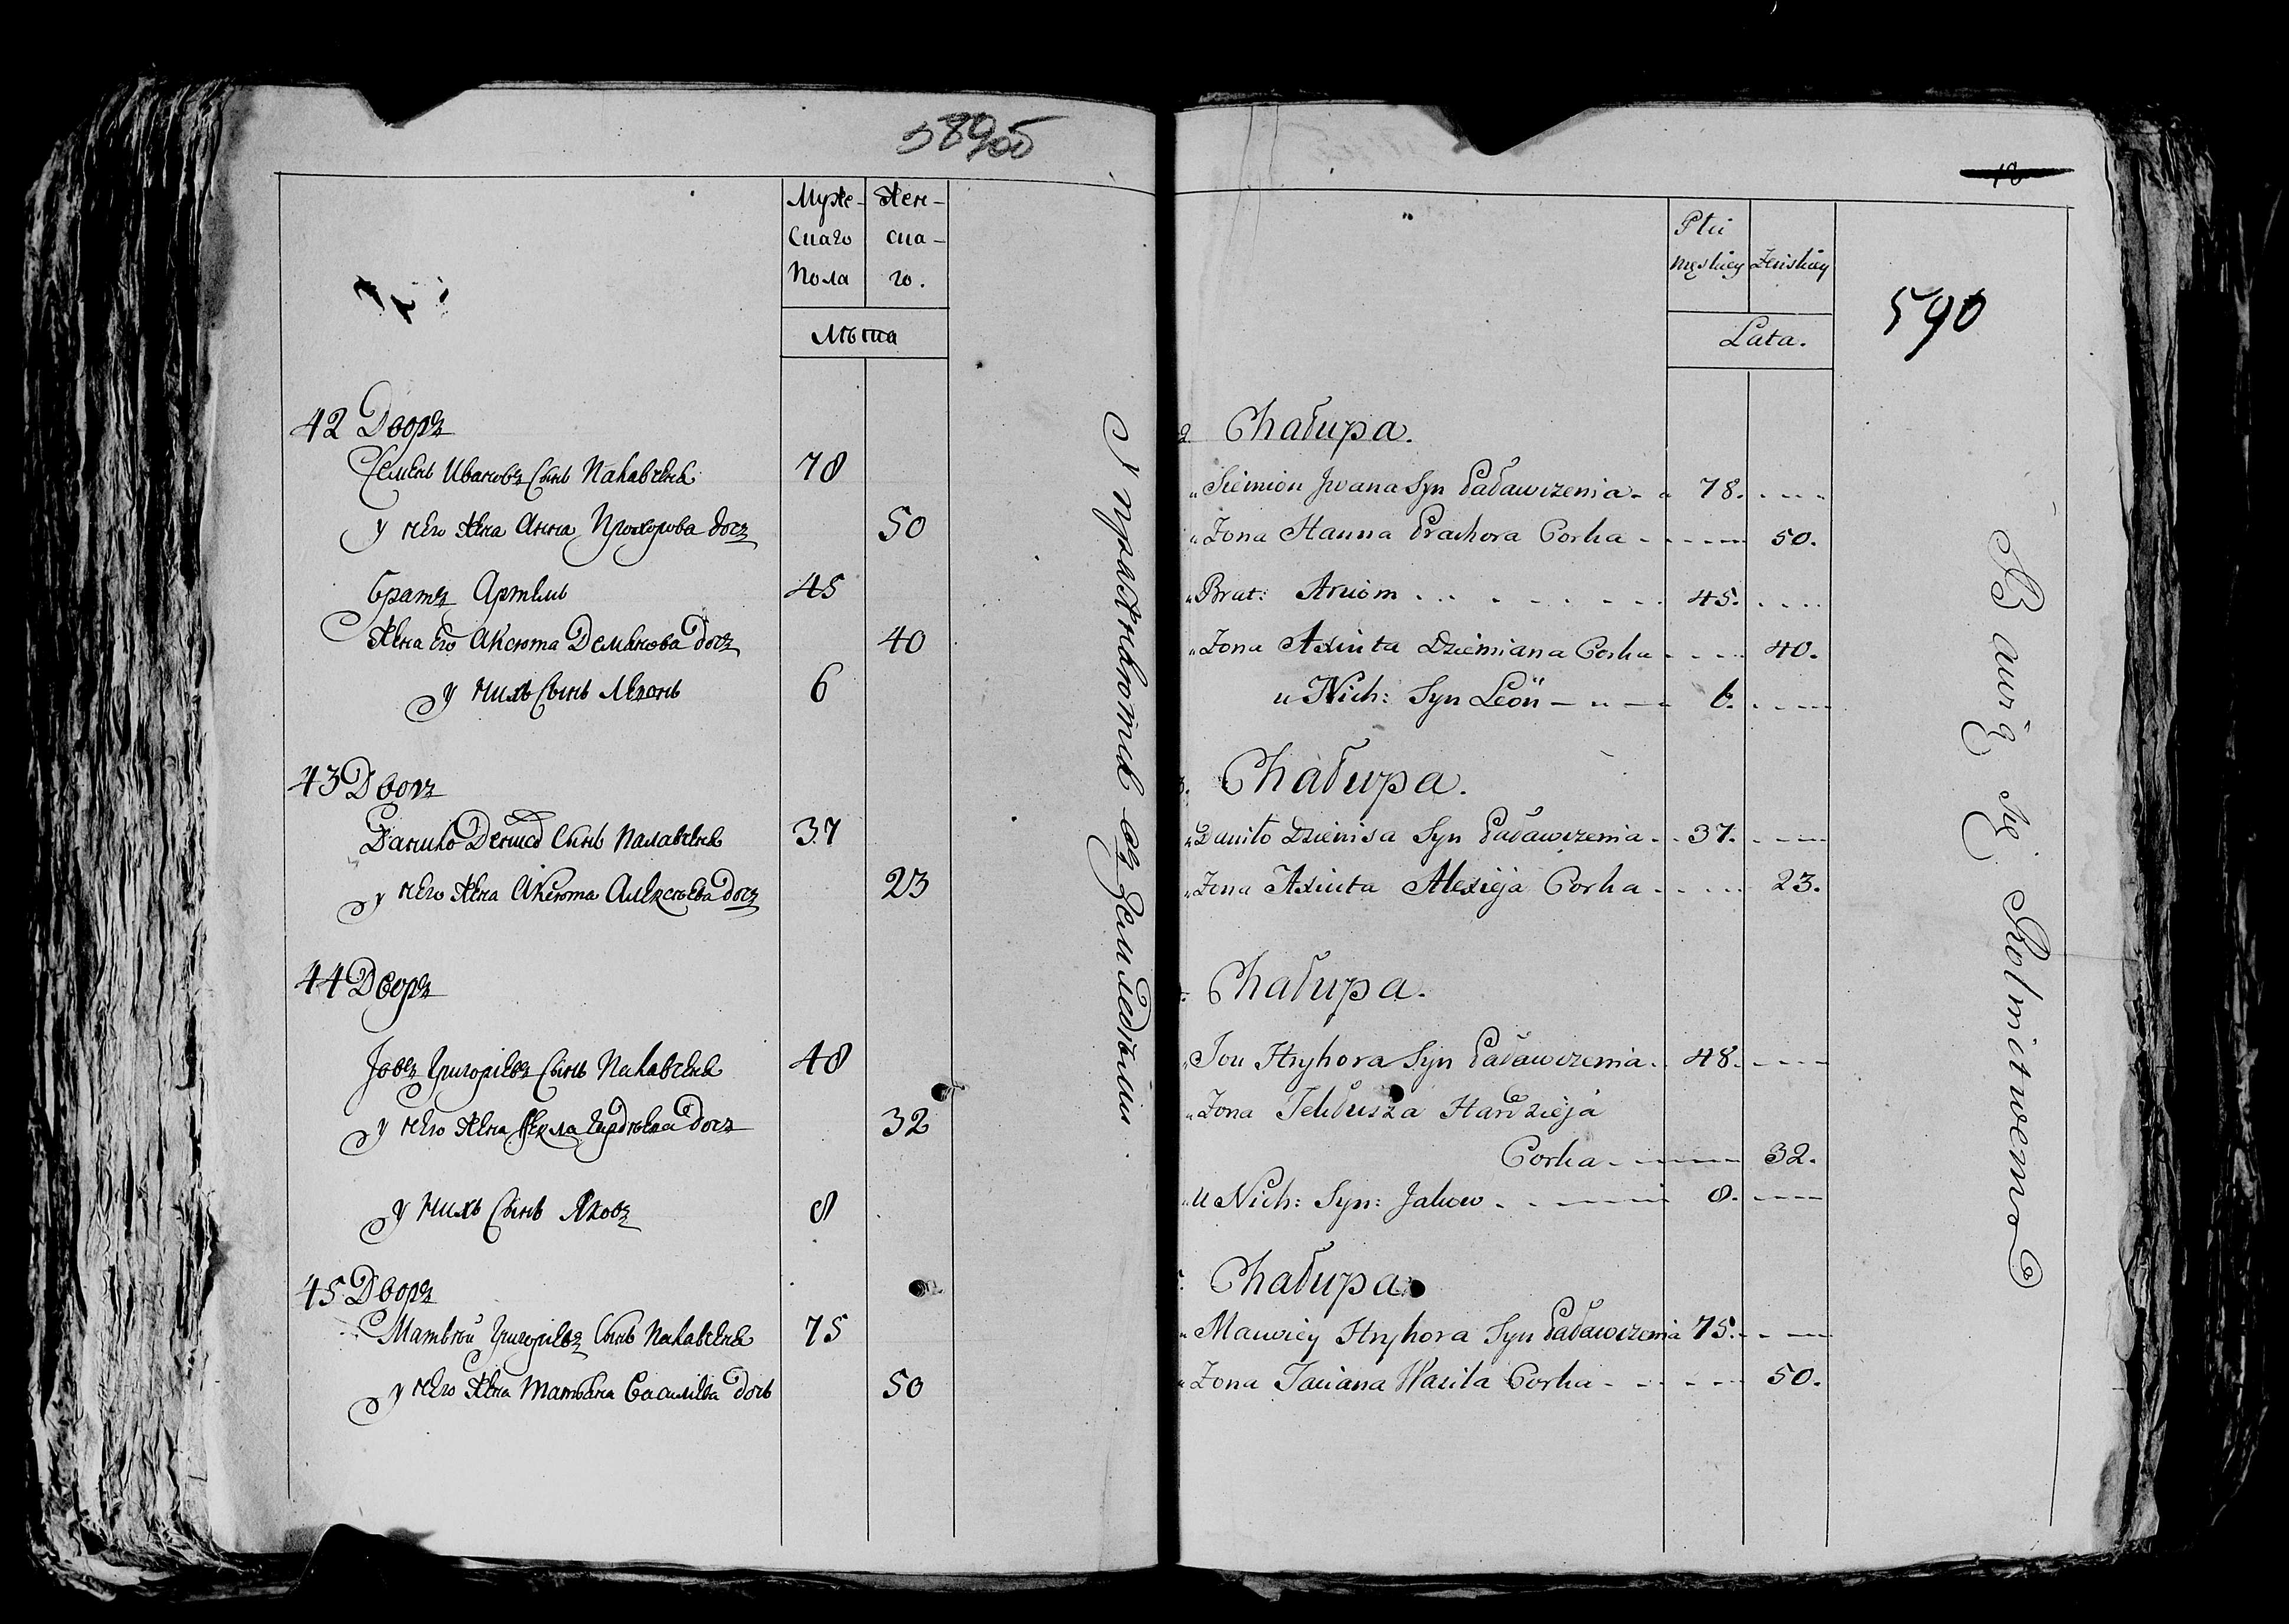 589об
Муже- Жен-
скаго ска-
Пола го.
Лѣта
42 Дворъ
Семенъ Ивановъ Сынъ Палавченя 78
у него Жена Анна Прохорова дочъ 50
братъ Артемъ 45
Жена Его Аксюта Деманова дочъ 40
у нихъ Сынъ Леонъ 6
43 Дворъ
Данило Дениса Сынъ Палавченя 37
у него Жена Аксюта Алексѣева дочъ 23
44 Дворъ
Іовъ Григоріевъ Сынъ Палавченя 48
у него Жена Гардѣева дочъ 32
у нихъ Сынъ Яковъ 8
45 Дворъ
Матвѣй Григоріевъ Сынъ Палавченя 75
у него Жена Татьяна Василіева дочь 50
Упражняются въ Земледѣліи
18
Płci
Męskiey Żeńskiey
Lata.
590
2. Chałupa.
" Siemion Jwana Syn Paławczenia - 78.
" Żona Hanna Prachora Corka - 50.
" Brat: Arciom 45.
" Żona Axiuta Dziemiana Corka 40.
u Nich: Syn Leon 6.
3. Chałupa.
" Daniło Dzienisa Syn Paławczenia - 37.
" Żona Axiuta Alexieja Corka - 23.
Chałupa.
" Jou Hryhora Syn Paławczenia. 48.
" Żona Hardzieja
Corka - 32.
" U Nich: Syn: Jakow 8.
Chałupa.
" Mawiey Hryhora Syn Paławczenia 75.
" Żona Taciana Wasila Corka - 50.
Bawią się Rolnictwem